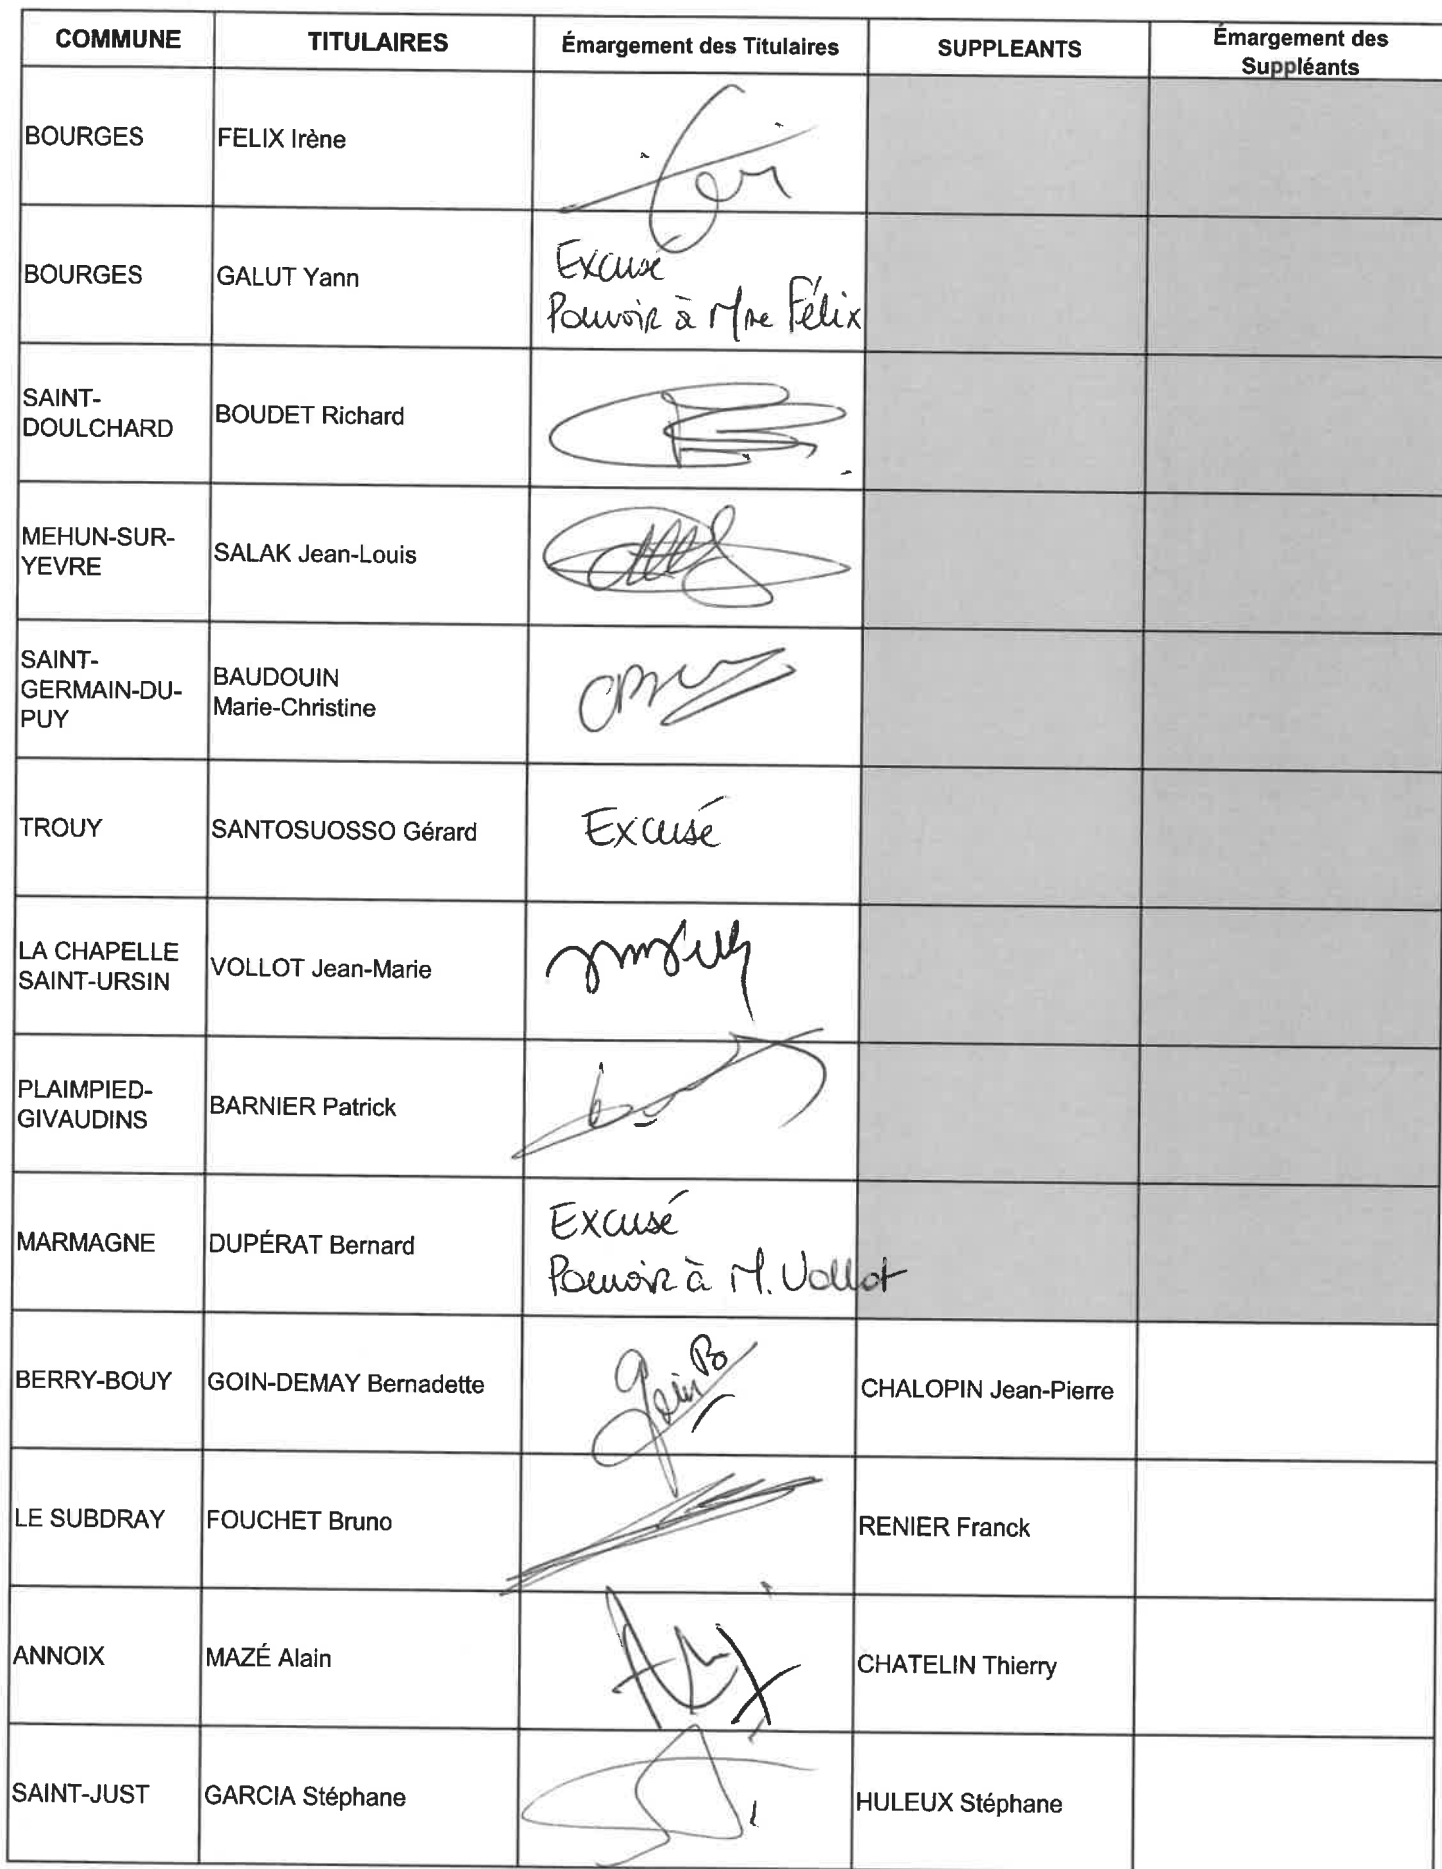 COMMUNE
TITULAIRES
Émargement des Titulaires
SUPPLEANTS
Émargement des
Suppléants
BOURGES
FELIX Irène
BOURGES
GALUT Yann
Excusé
Pouvoir à Mme Félix
SAINT-
DOULCHARD
BOUDET Richard
MEHUN-SUR-
YEVRE
SALAK Jean-Louis
SAINT-
GERMAIN-DU-
PUY
BAUDOUIN
Marie-Christine
TROUY
SANTOSUOSSO Gérard
Excusé
LA CHAPELLE
SAINT-URSIN
VOLLOT Jean-Marie
PLAIMPIED-
GIVAUDINS
BARNIER Patrick
MARMAGNE
DUPÉRAT Bernard
Excusé
Pouvoir à M. Vollot
BERRY-BOUY
GOIN-DEMAY Bernadette
CHALOPIN Jean-Pierre
LE SUBDRAY
FOUCHET Bruno
RENIER Franck
ANNOIX
MAZÉ Alain
CHATELIN Thierry
SAINT-JUST
GARCIA Stéphane
HULEUX Stéphane